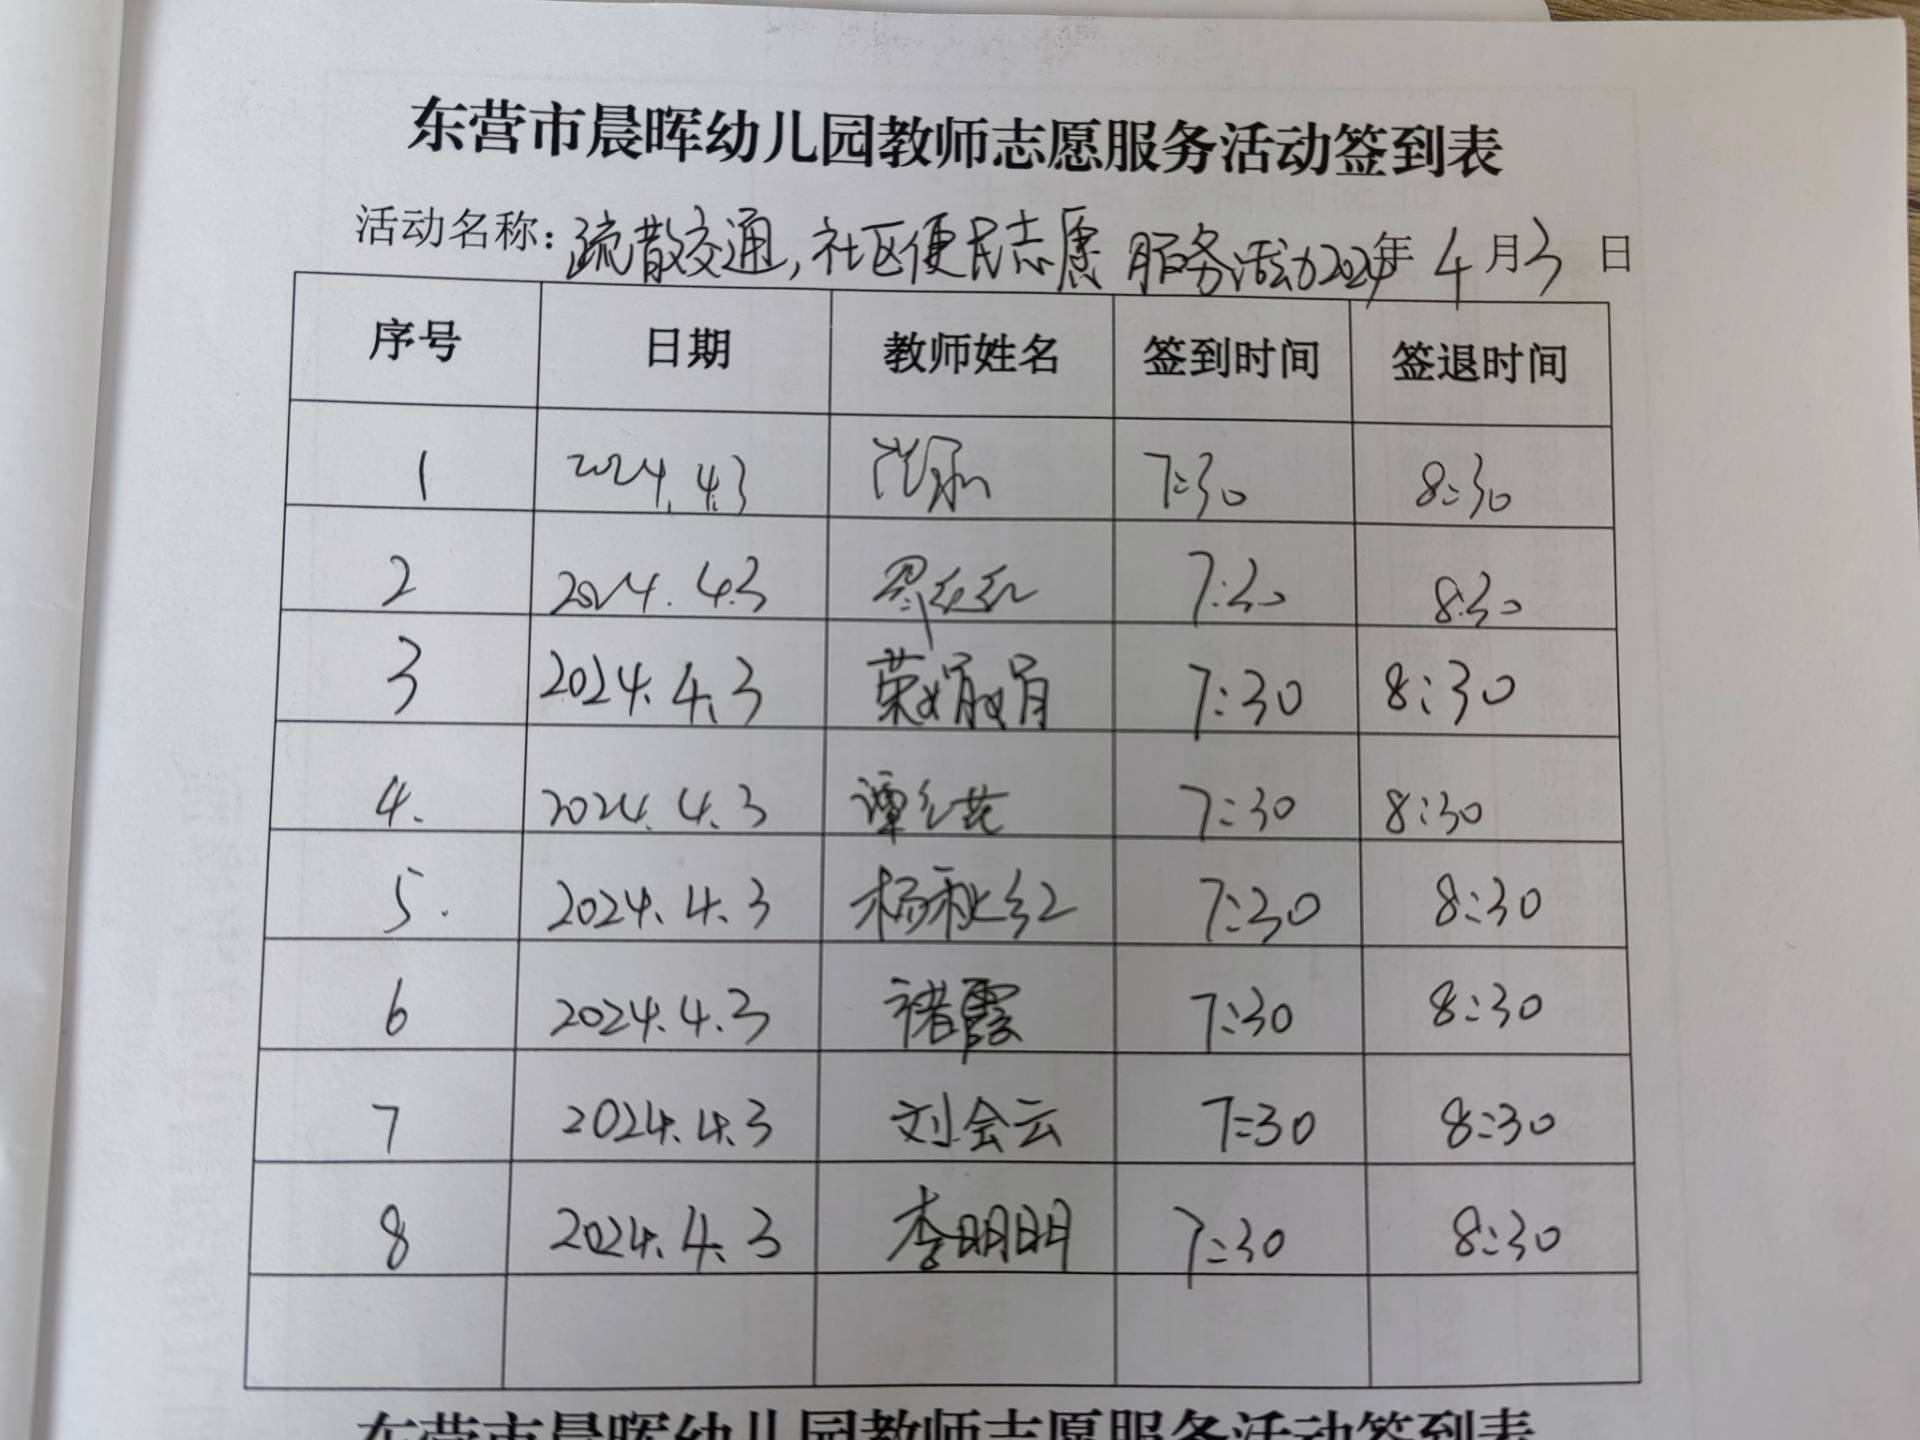 东营市晨晖幼儿园教师志愿服务活动签到表
活动名称：疏散交通，社区便民志愿服务活动2024年4月3日
序号 日期 教师姓名 签到时间 签退时间
1 2024.4.3 7:30 8:30
2 2024.4.3 7:30 8:30
3 2024.4.3 荣娟娟 7:30 8:30
4. 2024.4.3 谭红芸 7:30 8:30
5. 2024.4.3 杨秋红 7:30 8:30
6 2024.4.3 褚霞 7:30 8:30
7 2024.4.3 刘会云 7:30 8:30
8 2024.4.3 李明明 7:30 8:30
东营市晨晖幼儿园教师志愿服务活动签到表